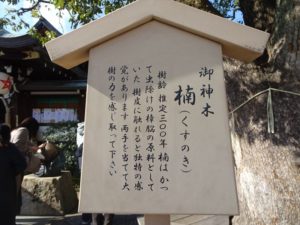 御神木
楠(くすのき)
樹齢 推定三〇〇年 楠はかつ
て虫除けの樟脳の原料として
いた 樹皮に触れると独特の感
覚があります 両手を当てて大
樹の力を感じ取って下さい